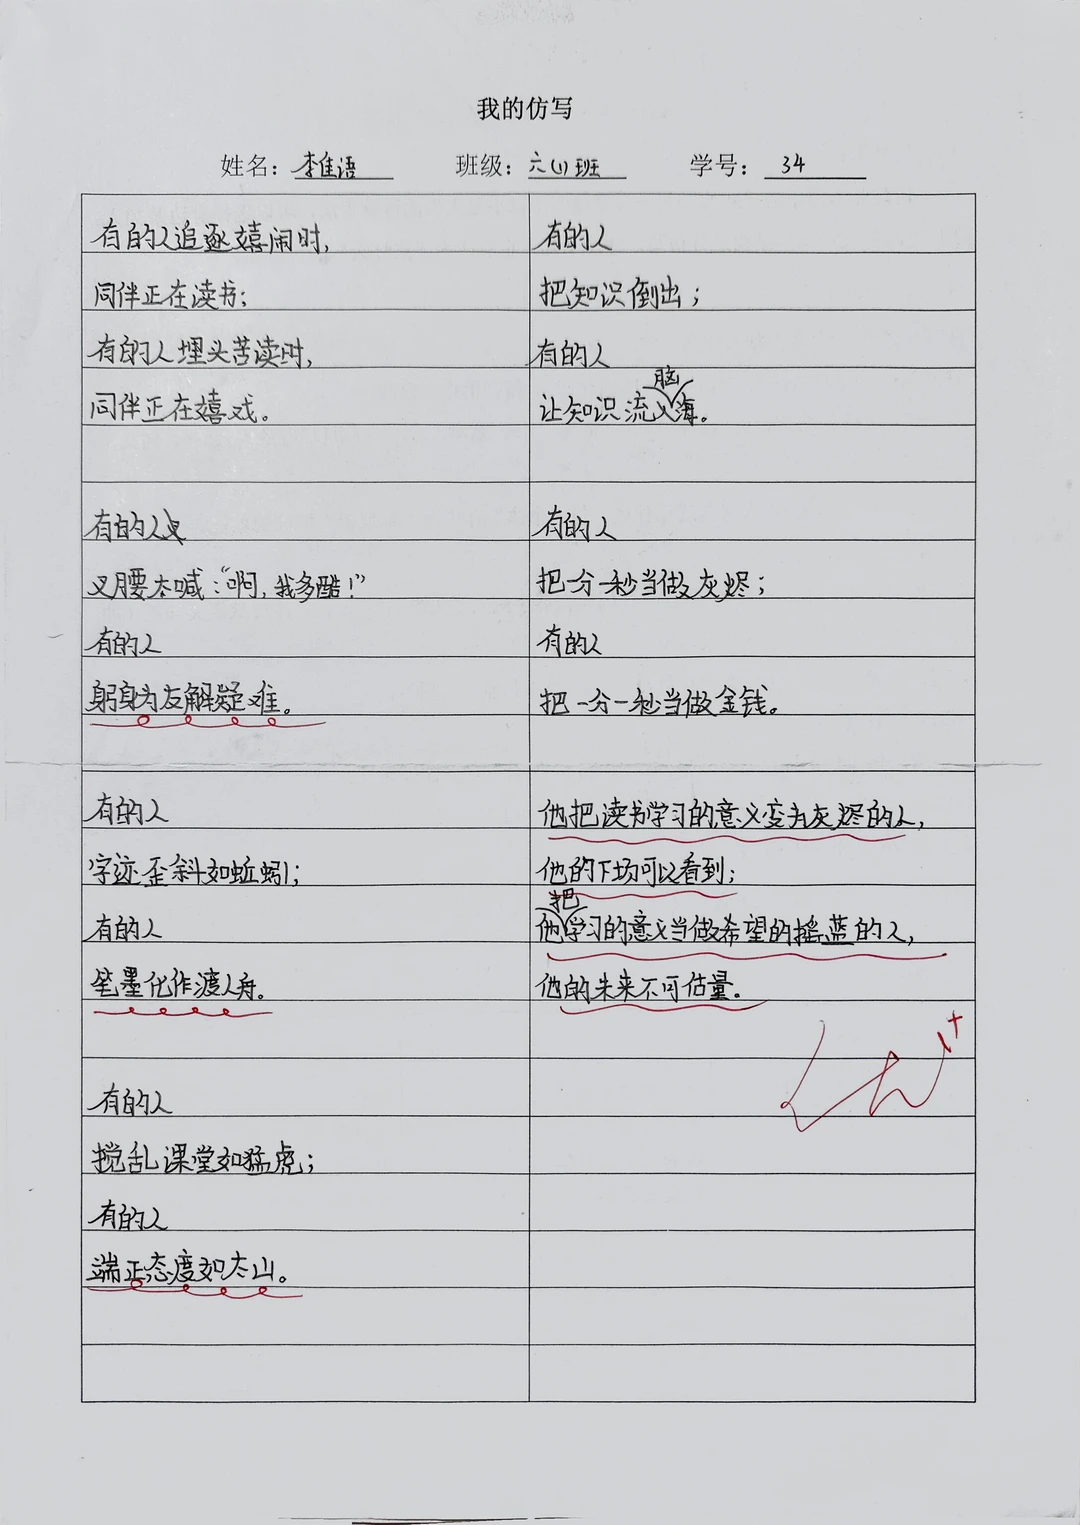 我的仿写
姓名：李佳语 班级：六(1)班 学号：34
有的人追逐嬉闹时，
同伴正在读书；
有的人埋头苦读时，
同伴正在嬉戏。
有的人
叉腰大喊：“啊，我多酷！”
有的人
躬身为友解疑难。
有的人
字迹歪斜如蚯蚓；
有的人
笔墨化作渡人舟。
有的人
搅乱课堂如猛虎；
有的人
端正态度如太山。
有的人
把知识倒出；
有的人
让知识流入脑海。
有的人
把一分一秒当做灰烬；
有的人
把一分一秒当做金钱。
他把读书学习的意义变为灰烬的人，
他的下场可以看到；
他把学习的意义当做希望的摇蓝的人，
他的未来不可估量。